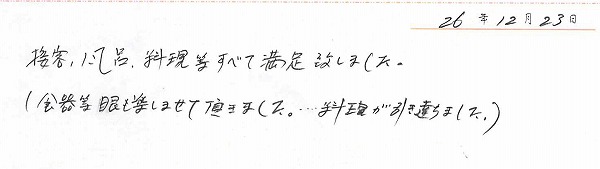 26年12月23日
接客,風呂,料理等すべて満足致しました。
(食器等眼も楽しませて頂きました。…料理が引き達ちました。)